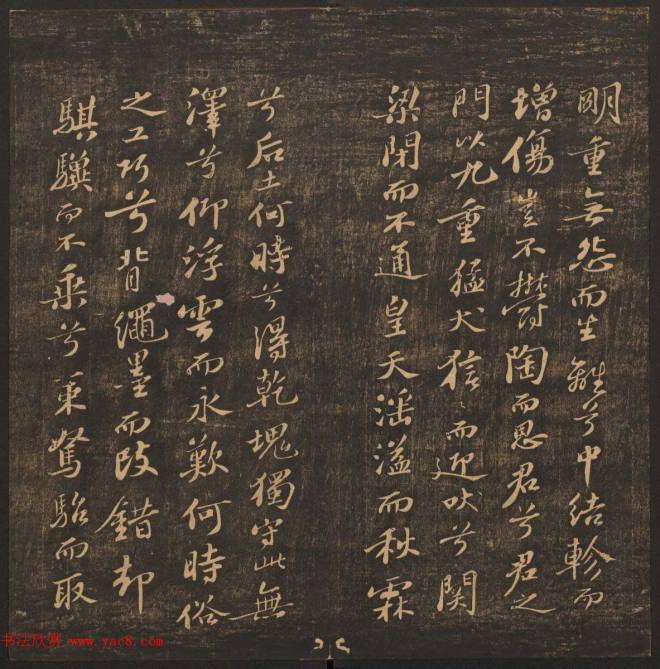 明重無怨而生離兮中結軫而
增傷豈不鬱陶而思君兮君之
門以九重猛犬狺〻而迎吠兮関
梁閉而不通皇天淫溢而秋霖
兮后土何時兮得乾塊獨守此無
澤兮仰浮雲而永歎何時俗
之工巧兮背繩墨而改錯却
騏驥而不乘兮策駑駘而取
书法欣赏 www.yac8.com